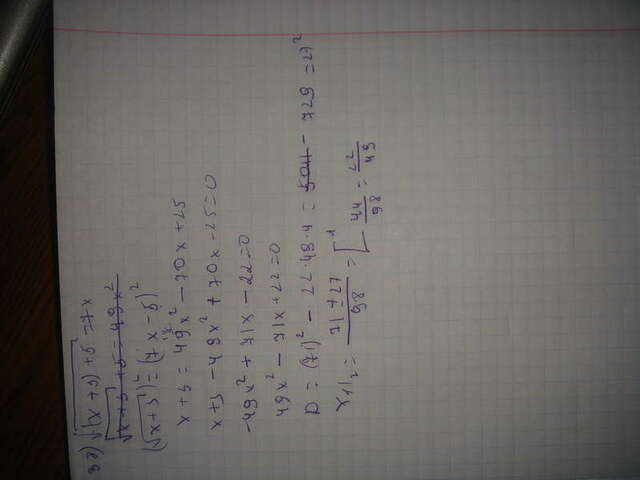 32) √(x+3) + 5 = 7x
√x+3 + 5 = 49x²
(√x+3)² = (7x-5)²
x+3 = 49x² - 70x + 25
x+3 - 49x² + 70x - 25 = 0
-49x² + 71x - 22 = 0
49x² - 71x + 22 = 0
D = (71)² - 22·49·4 = 504 - 729 = 27²
x₁/₂ = (71 ± 27)/98 = [ 1 44/98 = 22/49